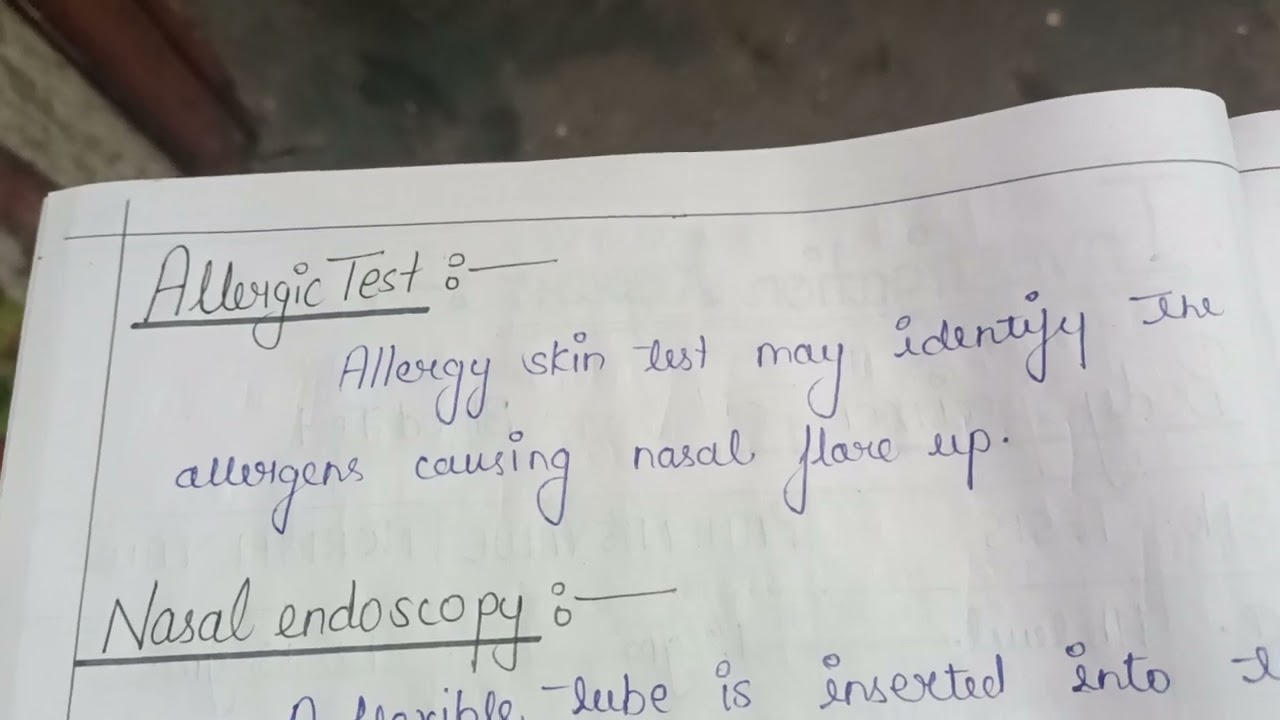 Allergic Test :—
Allergy skin test may identify the
allergens causing nasal flare up.
Nasal endoscopy :—
tube is inserted into